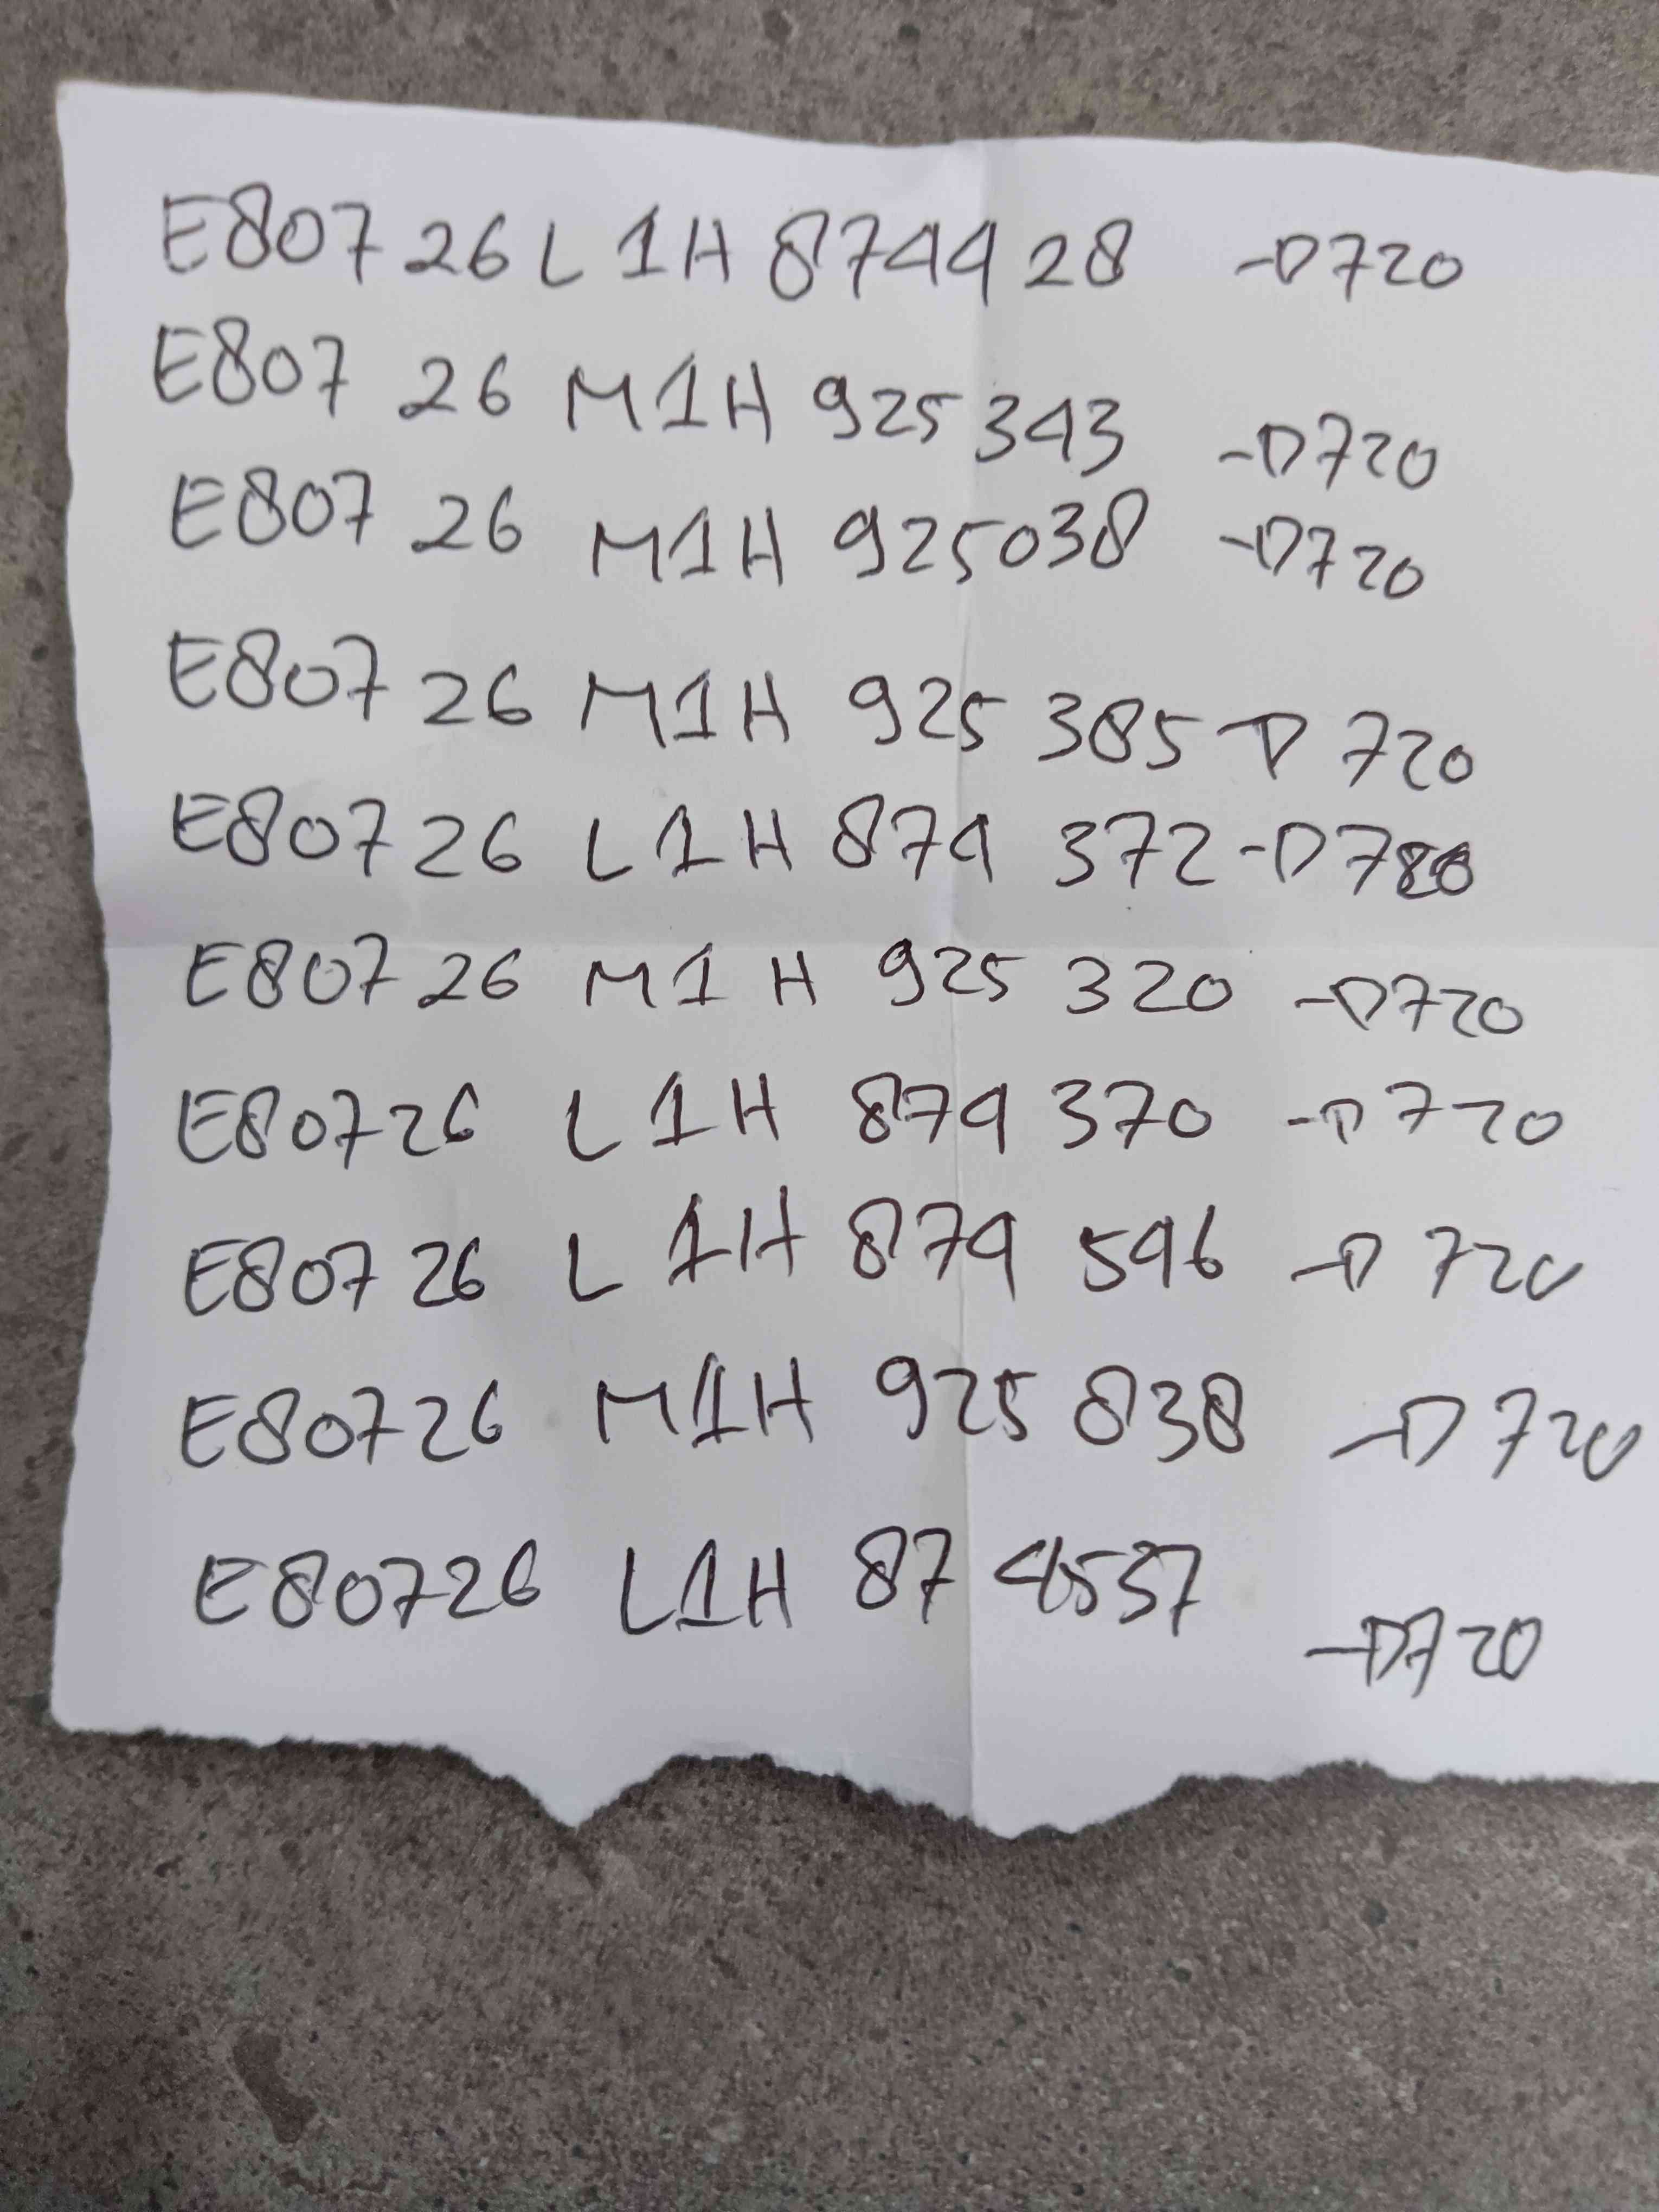 E80726L1H874428 -D720
E807 26 M1H 925343 -D720
E807 26 M1H 925038 -D720
E807 26 M1H 925 385-D 720
E80726 L1H 874 372-D720
E80726 M1H 925 320 -D720
E80726 L1H 874 370 -D720
E80726 L1H 874 596 -D 720
E80726 M1H 925 838 -D 720
E80726 L1H 87 4557
-D720